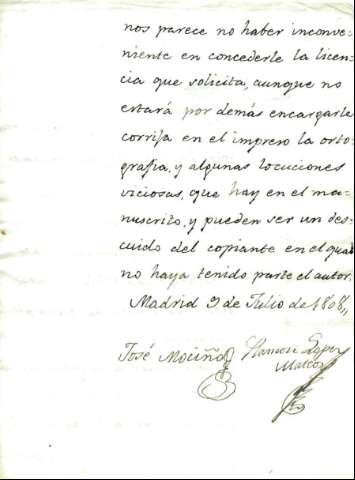 nos parece no haber inconve-
niente en concederle la licen-
cia que solicita, aunque no
estará por demás encargarle
corrija en el impreso la orto-
grafia, y algunas locuciones
viciosas, que hay en el ma-
nuscrito, y pueden ser un des-
cuido del copiante en el qual
no haya tenido parte el autor.
Madrid 9 de Julio de 1808,,
José Mociño Ramon Lopez
Mateos